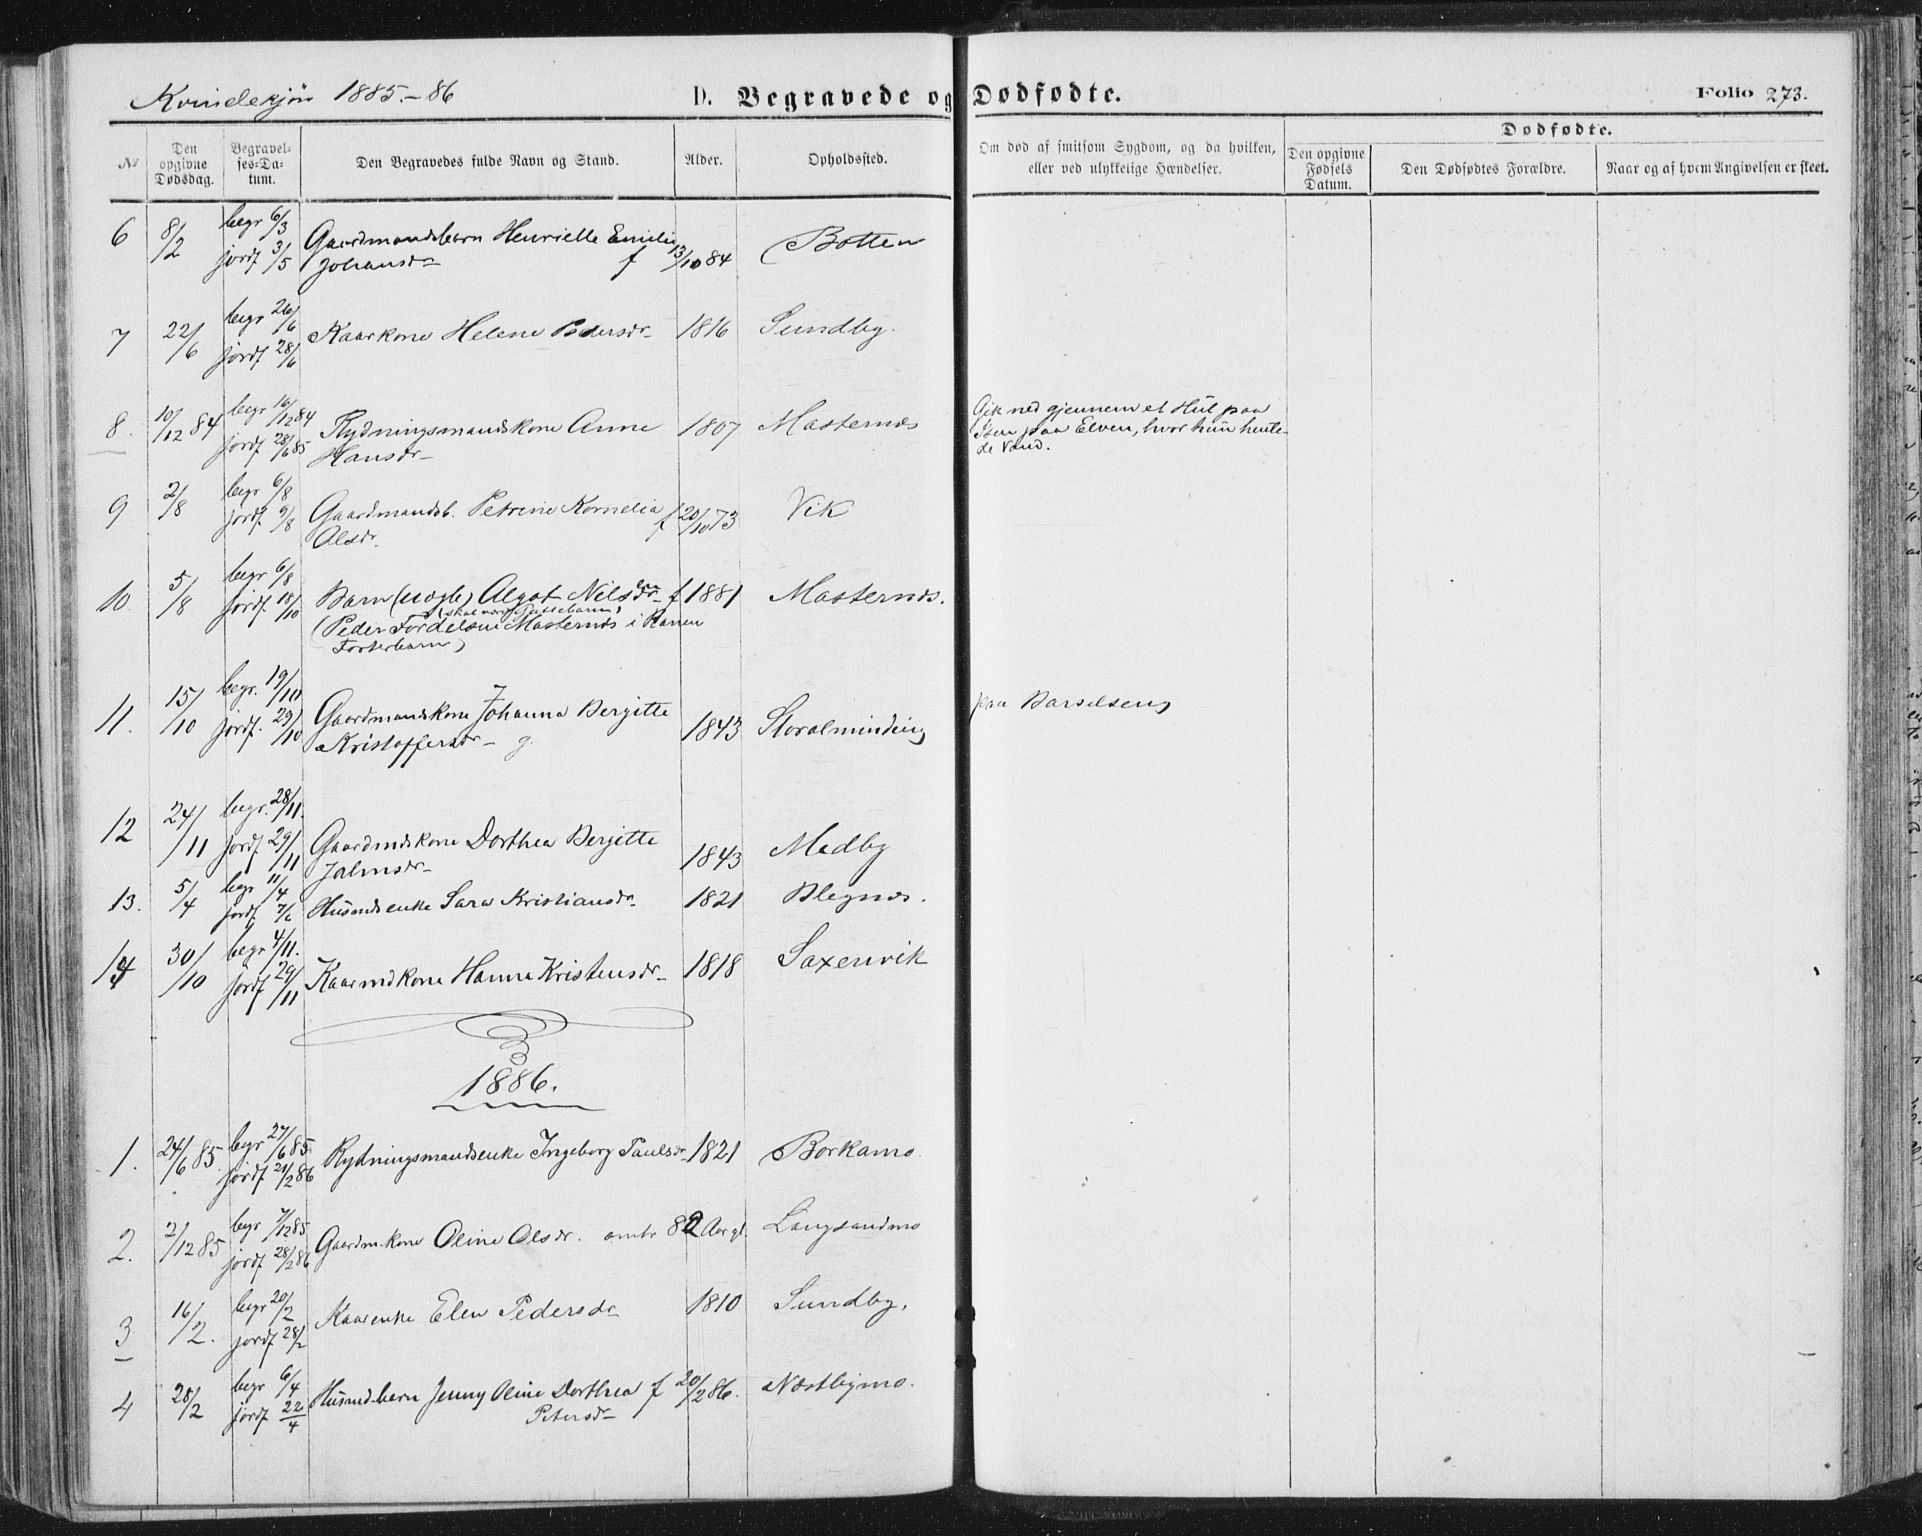 Kvindekjøn 1885.-86
D. Begravede og Dødfødte.
Folio 273.
No
Den opgivne Dødsdag.
Begravel-ses-Da-tum.
Den Begravedes fulde Navn og Stand.
Alder.
Opholdssted.
Om død af smitsom Sygdom, og da hvilken,
eller ved ulykkelige Hændelser.
Dødfødte.
Den opgivne Fødsels Datum.
Den Dødfødtes Forældre.
Naar og af hvem Angivelsen er skeet.
6 8/2 begr 6/3 Gaardmandsbarn Henrielle Emilie
jordf 3/5 Johansdr f 13/10 84 Botten
7 22/6 begr 26/6 Kaarkone Helene Pedersdr 1816 Sundby.
jordf 28/6
8. 10/12 84 begr 16/12 84 Rydningsmandskone Anne 1807 Masternæs
jordf 28/6 85 Hansdr
Gik ned gjennem et Hul paa
Isen paa Elven, hvor hun hente-
de Vand.
9 2/8 begr 6/8
jordf 9/8 Gaardmandsb. Petrine Kornelia f 20/10 73 Vik
Olsdr.
10. 5/8 begr 6/8
jordf 18/10 Barn (uægte) Algot Nilsdr f 1881 Masternæs.
(Peder Fordelsen Masternæs i Ranen
Fosterbarn)
11. 15/10 begr. 19/10
jordf. 29/10 Gaardmandskone Johanna Bergitte 1843 Storalminding
Kristoffersdr g.
paa Barselseng
12 24/11 begr. 28/11.
jordf 29/11 Gaardmdskone Dorthea Bergitte 1843 Medby
Jahnsdr
13. 5/4 begr 11/4
jordf 7/6 Husmdsenke Sara Kristiansdr 1821 Blegnæs.
14 30/10 begr 4/11.
jordf 29/11 Kaarmdkone Hanna Kristensdr 1818 Saxenvik
1886.
1. 24/6 85. begr 27/6 85. Rydningsmandsenke Ingeborg Paulsdr 1821 Borkamo
jordf 21/2 86
2. 2/12 85 begr 7/12 85 Gaardm.kone Oline Olsdr. omtr 82 Aar gl. Langsandmo
jordf 28/2 86
3 16/2. begr 20/2 Kaarenke Elen Pedersdr 1810 Sundby.
jordf 28/2
4 28/2 begr 6/4 Husmdbarn Jenny Oline Dorthea f 20/2 86. Næstbymo.
jordf 22/4 Petersdr